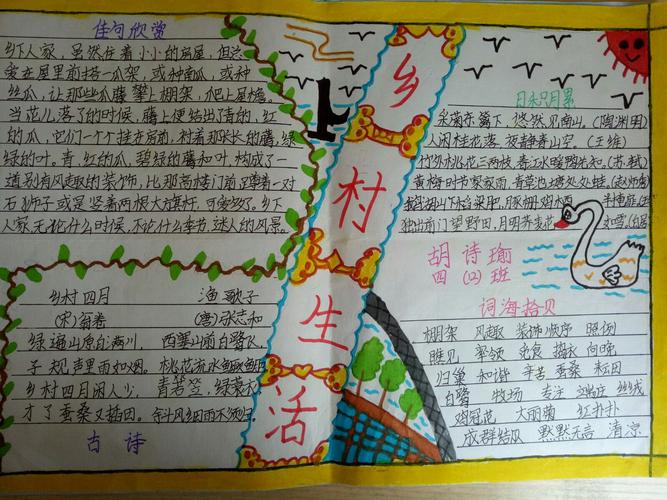 佳句欣赏
乡下人家,虽然住着小小的房屋,但总
爱在屋前搭一瓜架,或种南瓜,或种
丝瓜,让那些瓜藤攀上棚架,爬上屋檐。
当花儿落了的时候,藤上便结出了青的,红
的瓜,它们一个个挂在房前,衬着那长长的藤,绿
绿的叶。青,红的瓜,碧绿的藤和叶,构成了一
道别有风趣的装饰,比那高楼门前蹲着一对
石狮子或是竖着两根大旗杆,可爱多了。乡下
人家,无论什么时候,不论什么季节,迷人的风景。
乡村四月
(宋)翁卷
绿遍山原白满川,
子规声里雨如烟。
乡村四月闲人少,
才了蚕桑又插田。
渔歌子
(唐)张志和
西塞山前白鹭飞,
桃花流水鳜鱼肥
青箬笠,绿蓑衣
斜风细雨不须归。
古诗
乡村生活
日永月累
采菊东篱下,悠然见南山。(陶渊明)
人闲桂花落,夜静春山空。(王维)
竹外桃花三两枝,春江水暖鸭先知。(苏轼)
黄梅时节家家雨,青草池塘处处蛙。(赵师秀)
独出前门望野田,月明荞麦花
胡诗瑜
四(12)班
词海拾贝
棚架 风趣 装饰 顺序 照例
瞧见 率领 觅食 捣衣 向晚
归巢 和谐 辛苦 蚕桑 耘田
白鹭 牧场 专注
鸡冠花 大丽菊 红扑扑
成群结队 默默无言 清凉